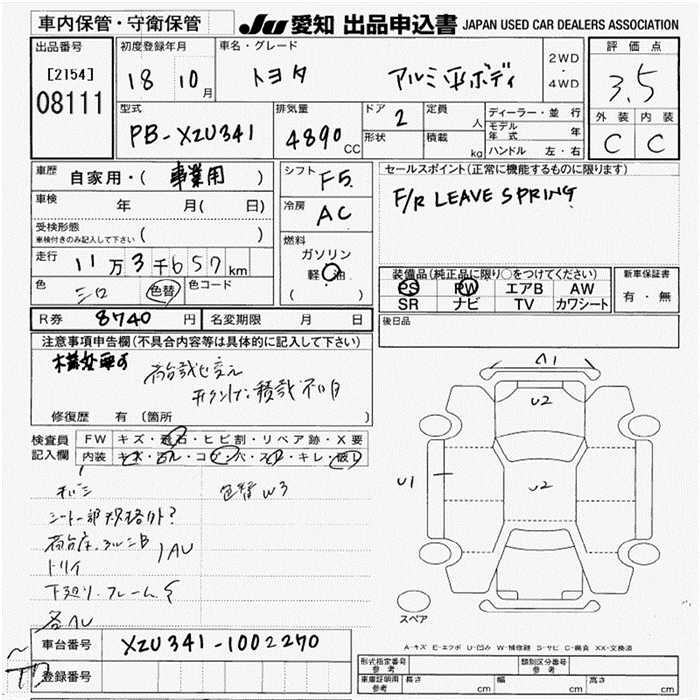 車内保管・守衛保管 JU 愛知 出品申込書 JAPAN USED CAR DEALERS ASSOCIATION
出品番号 初度登録年月 車名・グレード 2WD・4WD 評価点
[2154] 08111 18 10月 トヨタ アルミ平ボディ 3.5
外装 内装
C C
型式 排気量 ドア 定員 ディーラー・並行
PB-XZU341 4890CC 2 人 モデル年式 年
形状 積載 kg ハンドル 左・右
車歴 自家用・( 事業用 ) シフト F5 セールスポイント(正常に機能するものに限ります)
車検 年 月( 日) 冷房 AC F/R LEAVE SPRING
受検形態 ( )
車検付きのみ記入して下さい
燃料 ガソリン 軽油 ( )
走行 11万3千657km
装備品(純正品に限り○をつけてください) 新車保証書
PS PW エアB AW 有・無
SR ナビ TV カワシート
色 シロ 色替 色コード
R券 8740円 名変期限 月 日
後日品
注意事項申告欄(不具合内容等は具体的に記入して下さい)
修復歴 有 〔箇所 〕
検査員記入欄 FW キズ・飛石・ヒビ割・リペア跡・X要
内装 キズ・ヨゴレ・コゲ・穴・スレ・キレ・破レ
色替W3
シート一部規格外?
下廻り.フレームサ
各AU
A1
U2
U1
U2
スペア
A-キズ E-エクボ U-凹み W-補修跡 S-サビ C-腐食 XX-交換済
車台番号 XZU341-1002270
登録番号
形式指定番号 参考 類別区分番号 参考
車庫証明用 参考 長さ cm 幅 cm 高さ cm